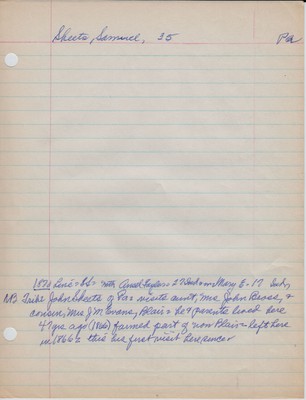 Sheets, Samuel, 35 Pa
1870 Census - Bl= with 27 Indiana, Mary E - 17 Ind,
NB Tribe John Sheets of Pa = visits aunt, Mrs John Bross, &
cousin, Mrs J M Evans, Blair = he & parents lived here
47 yrs ago (1860) farmed part of now Blair = left here
in 1866 = this his first visit here since